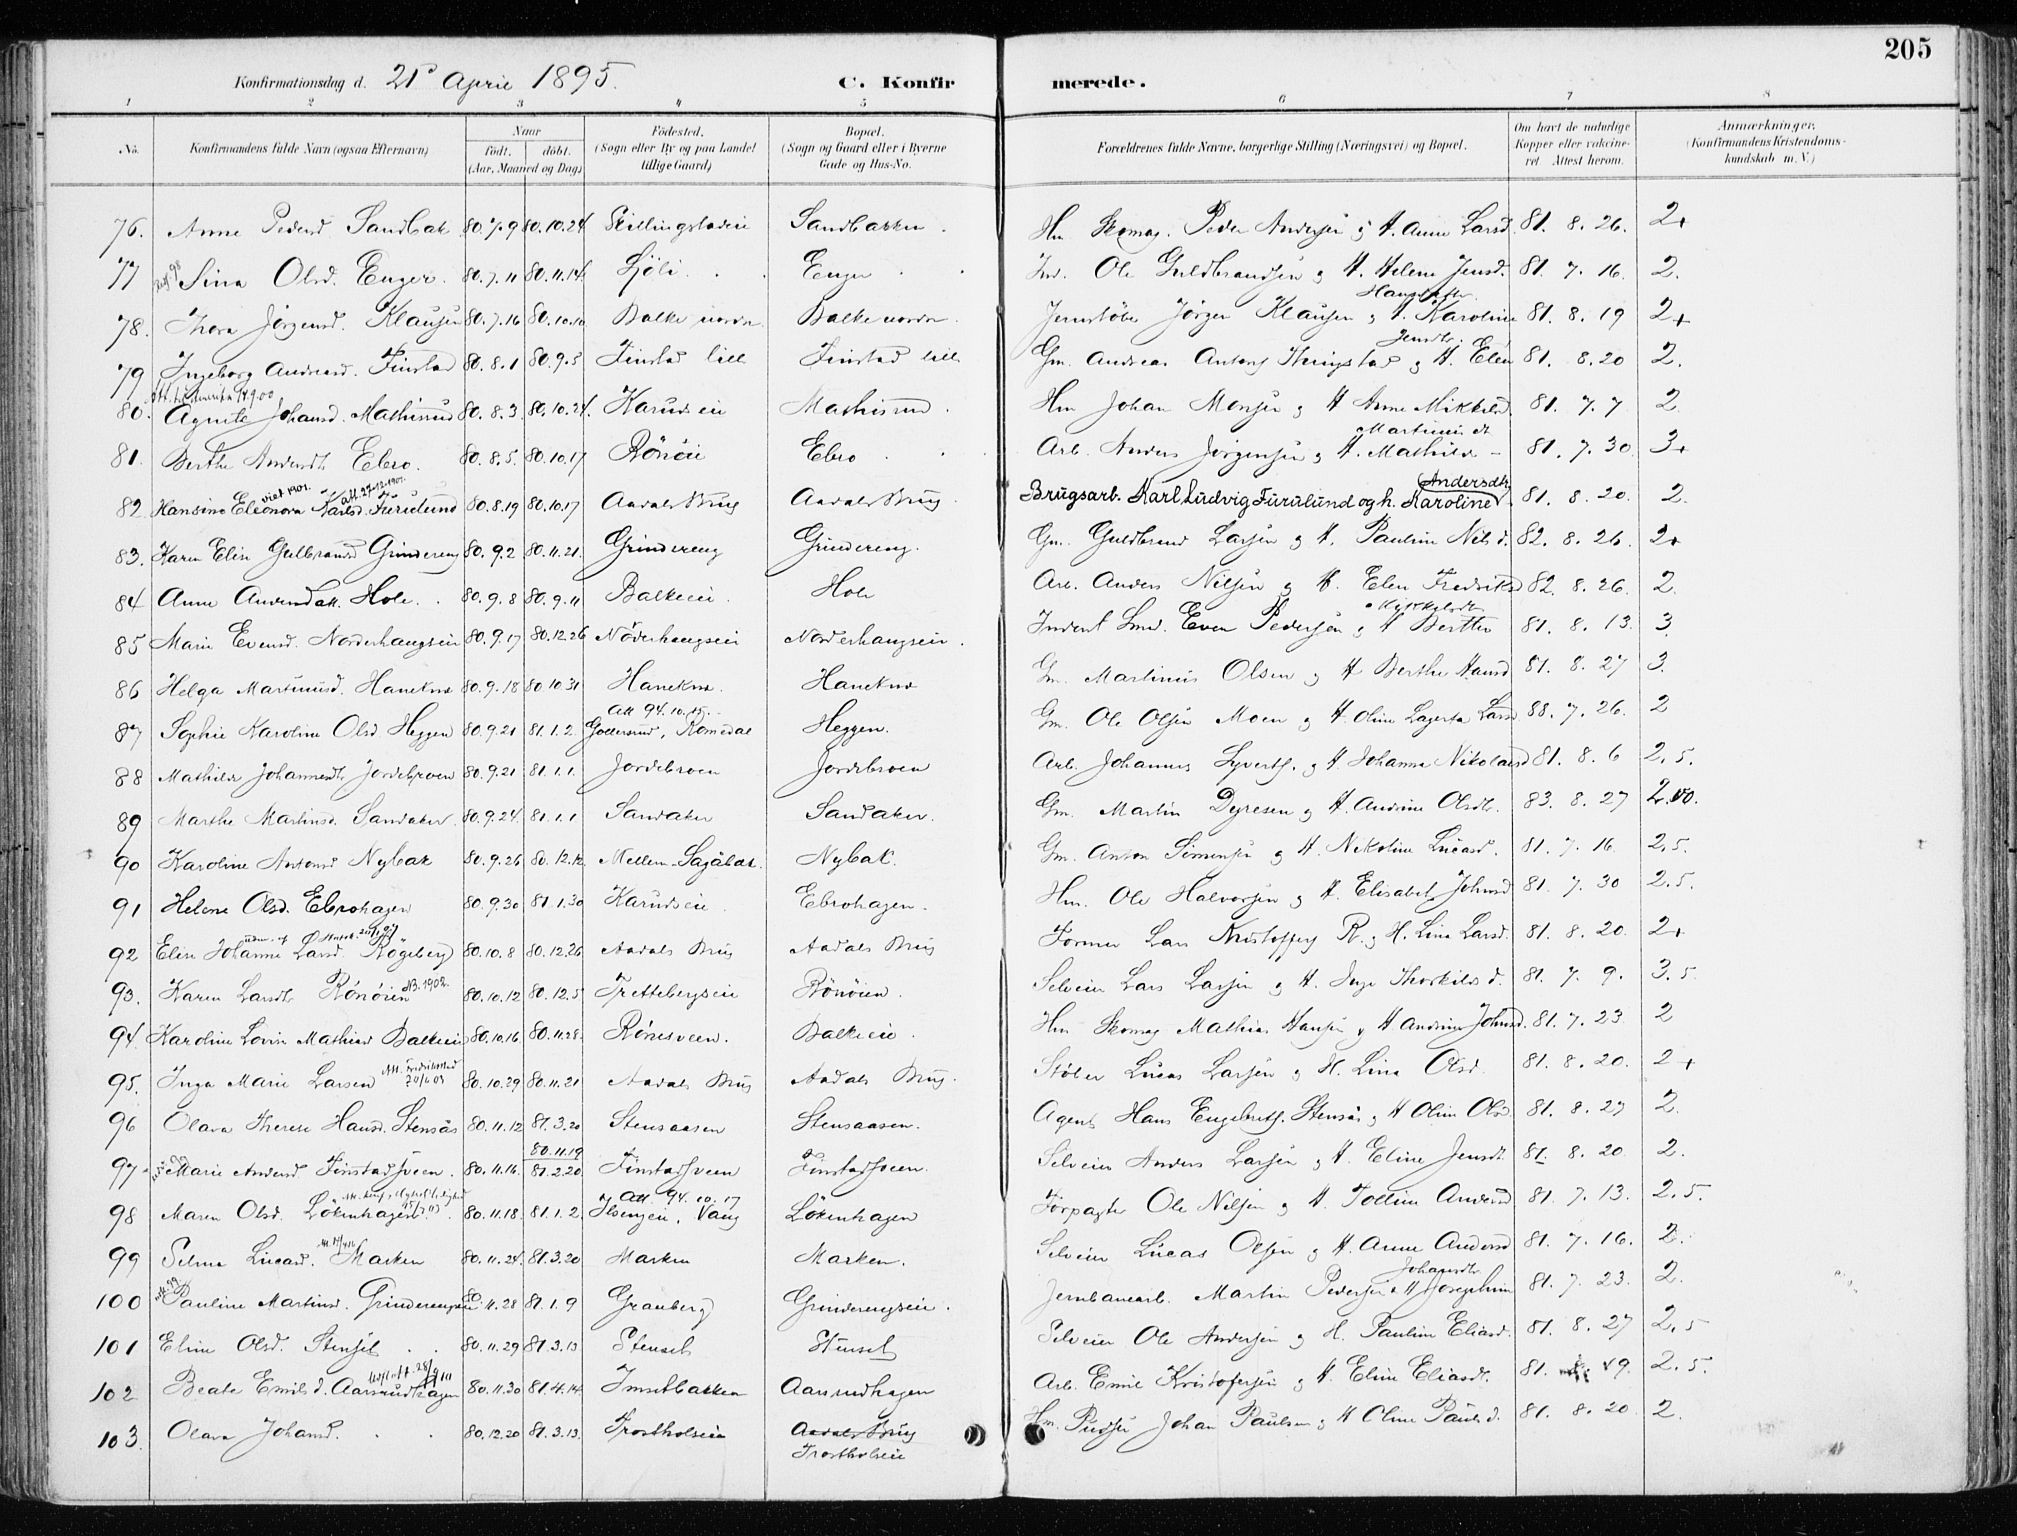 205
Konfirmationsdag d. 21de April 1895.
C. Konfirmerede.
1 2 3 4 5 6 7 8
No. Konfirmandens fulde Navn (ogsaa Efternavn) Naar Fødested. Bopæl. Forældrenes fulde Navne, borgerlige Stilling (Næringsvei) og Bopæl. Om havt de naturlige Anmærkninger,
født. døbt. (Sogn eller By og paa Landet (Sogn og Gaard eller i Byerne Kopper eller vakcine- (Konfirmandens Kristendoms-
(Aar, Maaned og Dag) tillige Gaard) Gade og Hus-No. ret. Attest herom. kundskab m. V.)
76. Anne Pedersd. Sandbak 80.7.9 80.10.24 Skillingstadeie Sandbakken. Hm. Skomag. Peder Andersen og H. Anne Larsd. 81. 8. 26. 2+
77 Sina Olsd. Enger. 80.7.11 80.11.14 Sjöli Enger Ind. Ole Guldbrandsen og H. Helene Jensd. 81. 7. 16. 2.
78. Thora Jörgensd. Klausen 80.7.16 80.10.10 Balke nordre Balke nordre. Jernstöber Jörgen Klausen og H. Karoline 81. 8. 19 2+
79 Ingeborg Andreasd. Finstad 80.8.1 80.9.5 Finstad lill Finstad lill Gm. Andreas Antons. Thingstad og H. Elen Jensdtr. 81. 8.20 2.
80. Agnete Johansd. Mathisrud 80.8.3. 80.10.24. Karudseie Mathisrud. Hm Johan Monsen og H Anne Mikkelsd. 81. 7. 7 2
81. Berthe Andersdt. Ebro. 80.8.5. 80.10.17 Rönöie Ebro Arb. Anders Jörgensen og H. Mathilde Martinusdt 81. 7. 30. 3+
82 Hansine Eleonora Karlsd. Furulund viet 1901. att. 27-12-1901. 80.8.19 80.10.17 Aadals Brug Aadals Brug. Brugsarb. Karl Ludvig Furulund og h. Karoline Andersdtr. 81. 8. 20. 2.
83. Karen Elise Gulbrandsd Grindereng 80.9.2 80.11.21. Grindereng Grindereng. Gm. Guldbrand Larsen og H. Pauline Nilsd. 82. 8. 26. 2+
84 Anne Andersdatt. Hole. 80.9.8 80.9.11 Balkeeie. Hole Arb. Anders Nilsen og H. Elen Fredriksd 82. 8. 26. 2.
85 Marie Evensd. Norderhaugseie 80.9.17 80.12.26 Nöderhaugseie Norderhaugseie. Inderst Smed. Even Pedersen og H Berthe 81. 8. 13. 3.
86 Helga Martinusd. Hanekne 80.9.18 80.10.31 Hanekne. Hanekne Gm. Martinus Olsen og H Berthe Hansd 81. 8. 27 3.
87 Sophie Karoline Olsd. Heggen 80.9.21 81.1.2. Att 94.10.15. Gottersrud, Romedal Heggen. Gm. Ole Olsen Moen og H. Oline Lagerta Larsd 88. 7. 26. 2
88 Mathilde Johannesdt. Jordebroen 80.9.21 81.1.1. Jordebroen Jordebroen Arb. Johannes Syverts. og H. Johanna Nikolaisd 81. 8. 6 2.5.
89 Marthe Martinsd. Sandaker 80.9.24. 81.1.1 Sandaker Sandaker. Gm. Martin Dyresen og H. Andrine Olsdt. 83. 8. 27
90 Karoline Antonsd Nybak 80.9.26 80.12.12 Mellem-Sagbak. Nybak. Gm. Anton Simensen og H. Nikoline Lucasd. 81. 7. 16. 2.5.
91 Helene Olsd. Ebrohagen 80.9.30 81.1.30 Karudseie. Ebrohagen. Hm. Ole Halvorsen og H. Elisabet Johnsd 81. 7. 30 2.5.
92 Elise Johanne Larsd. Rögeberg 80.10.8 80.12.26 Aadals Brug Aadals Brug Former Lars Kristoffers R. og H. Lina Larsd. 81. 8. 20. 2+
93. Karen Larsdt. Rönöien NB. 1902. 80.10.12 80.12.5 Prettebergseie Rönöien. Selveier Lars Larsen og H. Inge Thorkilsd. 81. 7. 9. 3.5
94. Karoline Lovise Mathiasd Balkeeie 80.10.16. 80.11.28. Rönesveen. Balkeeie. Hm Skomag Mathias Hansen og H Andrine Johnsd. 81. 7. 23 2
95. Inga Marie Larsen Att. Fredrikstad 80.10.29 80.11.21 Aadals Brug Aadals Brug. Stöber Lucas Larsen og H. Lina Olsd. 81. 8. 20. 2+
96 Olava Therese Hansd. Stensås 80.11.12 81.3.20 Stensaasen Stensaasen. Agent Hans Engebrets. Stensås og H Oline Olsd 81. 8. 27 2.
97. Marie Andersd. Finstadsveen. 80.11.16. 80.11.19 81.2.20. Finstadsveen Finstadsveen. Selveier Anders Larsen og H. Eline Jensdt. 81. 8. 20. 2.
98 Maren Olsd. Lökenhagen 80.11.18. 81.1.2. Att. 94. 10. 17 Ilsengeie, Vang Lökenhagen Forpagter Ole Nilsen og H Golline Andersd 81. 7. 13. 2.5.
99 Selma Lucasd. Marken 80.11.24. 81.3.20 Marken Marken. Selveier Lucas Olsen og H. Anne Andersd 81. 7. 16. 2.
100 Pauline Martinsd. Grinderengseie 80.11.28 81.1.9 Grauberg Grinderengseie. Jernbanearb. Martin Pedersen og H Josephine Johansdtr. 81. 7. 23. 2.
101 Eline Olsd. Stenset 80.11.29 81.3.13 Stenset Stenset Selveier Ole Andersen og H. Pauline Eliasd. 81. 8. 27 2.5
102 Beate Emilsd. Aarsrudhagen 80.11.30 81.4.14. Imsetbakken Aarsrudhagen Arb. Emil Kristofersen og H. Eline Eliasdt. 81. 2.5.
103. Olava Johansd. 80.12.20 81.3.13. Frostholseie Aadals Brug Hm. Pudser Johan Paulsen og H Oline Paulsd. 81. 8. 20. 2.
Frostholseie